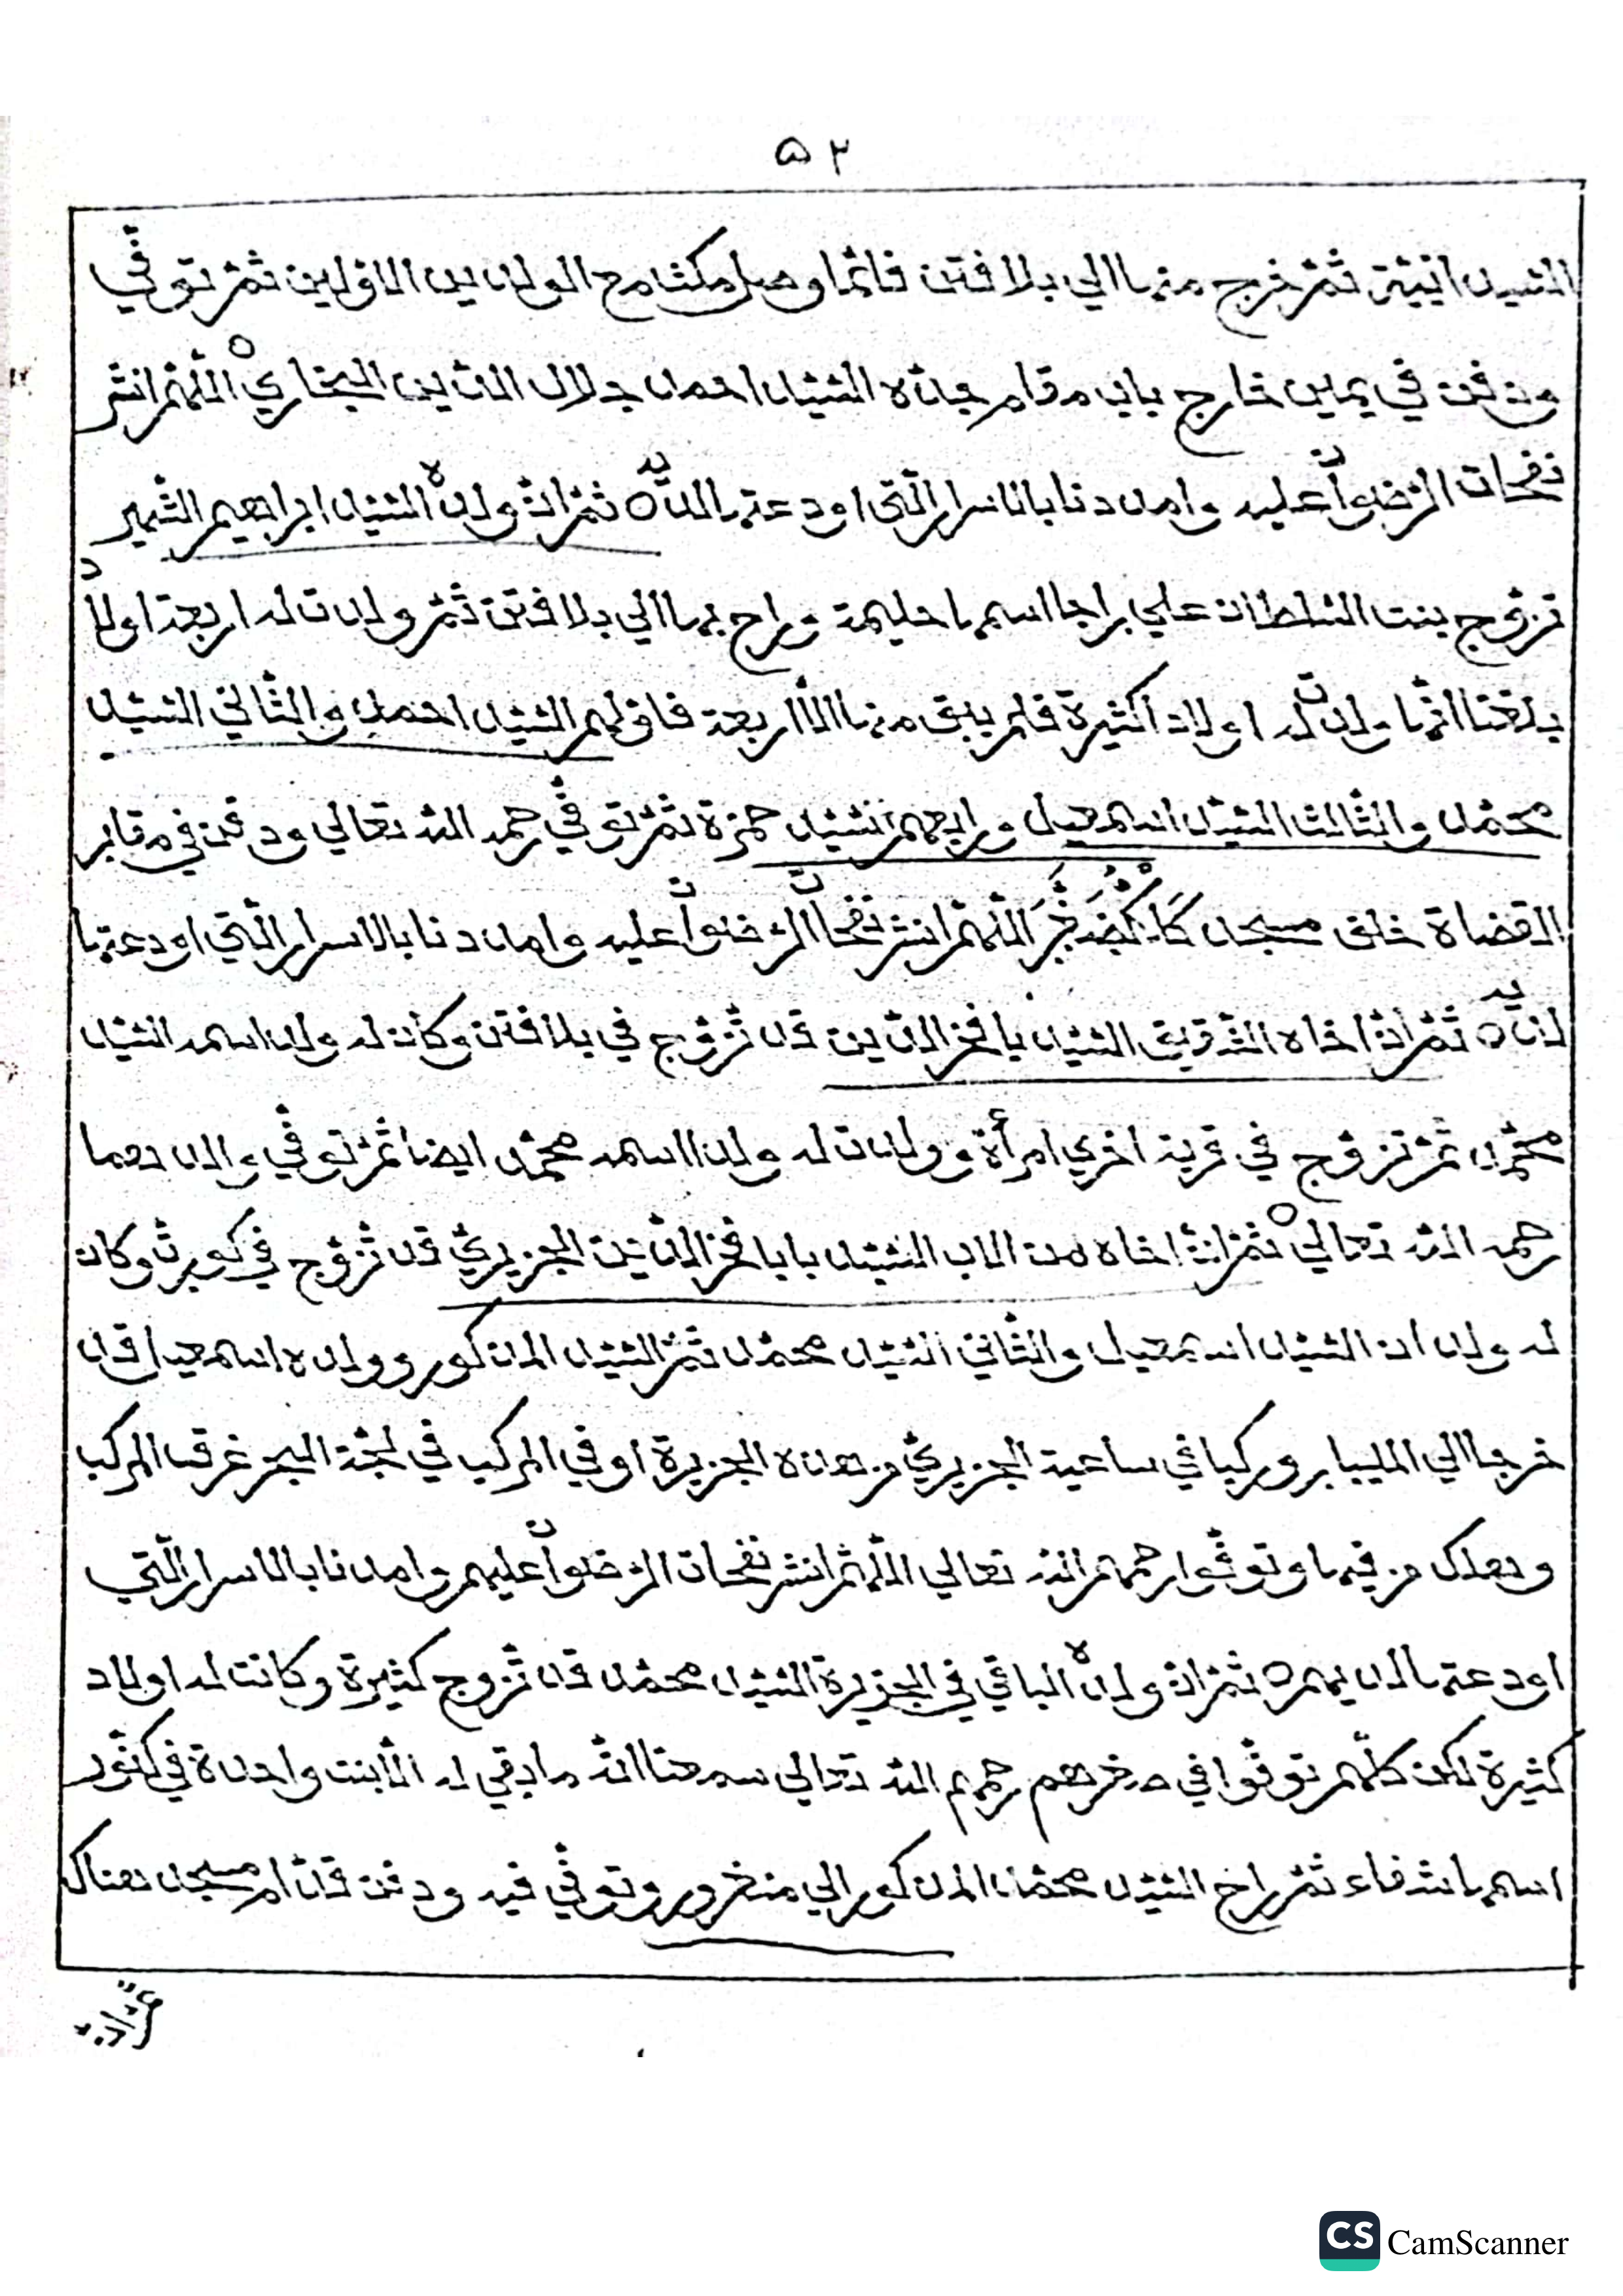 ۵۲
السّيد انيتة ثمّ خرج منها الي بلا فتن فلمّا وصل مكث مع الولدين الاوّلين ثمّ توفّي
ودفن في يمين خارج باب مقام جدّه السّيّد احمد جلال الدّين البخاري ه اللّهمّ انشر
نفحات الرّضوان عليه وامددنا بالاسرار الّتي اودعتها لديه ه ثمّ انّ ولده السّيّد ابراهيم الشّهير
تزوّج بنت السّلطان علي براجا اسمها حليمة وراح بها الي بلا فتن ثمّ ولدت له اربعة اولاد
بلغنا انّها ولدت له اولادا كثيرة فلم يبق منها الّا اربعة فاوّلهم السّيّد احمد والثّاني السّيّد
محمّد والثّالث السّيّد اسمعيل ورابعهم السّيّد حمزة ثمّ توفّي رحمه الله تعالي ودفن في مقابر
القضاة خلف مسجد اللّهمّ انشر نفحات الرّضوان عليه وامددنا بالاسرار الّتي اودعتها
لديه ه ثمّ انّ اخاه الشّقيق السّيّد با فخر الدّين قد تزوّج في بلا فتن وكان له ولد اسمه السّيّد
محمّد ثمّ تزوّج في قرية اخري امرأة وولدت له ولدا اسمه محمّد ايضا ثمّ توفّي والدهما
رحمه الله تعالي ه ثمّ انّ اخاه من الاب السّيّد بابا فخر الدّين الجزيريّ قد تزوّج في كويرث وكان
له ولدان السّيّد اسمعيل والثّاني السّيّد محمّد ثمّ السّيّد المذكور وولده اسمعيل قد
خرجا الي المليبار وركبا في ساعية الجزيريّ من هذه الجزيرة او في المركب في لجّة البحر غرقت المركب
وهلك من فيها وتوفّوا رحمهم الله تعالي اللّهمّ انشر نفحات الرّضوان عليهم وامددنا بالاسرار الّتي
اودعتها لديهم ه ثمّ انّ ولده الباقي في الجزيرة السّيّد محمّد قد تزوج كثيرة وكانت له اولاد
كثيرة لكن كلّهم توفّوا في صغرهم رحمهم الله تعالي سمعنا انّه ما بقي له الّا بنت واحدة في كنّور
اسمها شفاء ثمّ راح السّيّد محمّد المذكور الي منغرور وتوفّي فيه ودفن قدّام مسجد هناك
CS CamScanner